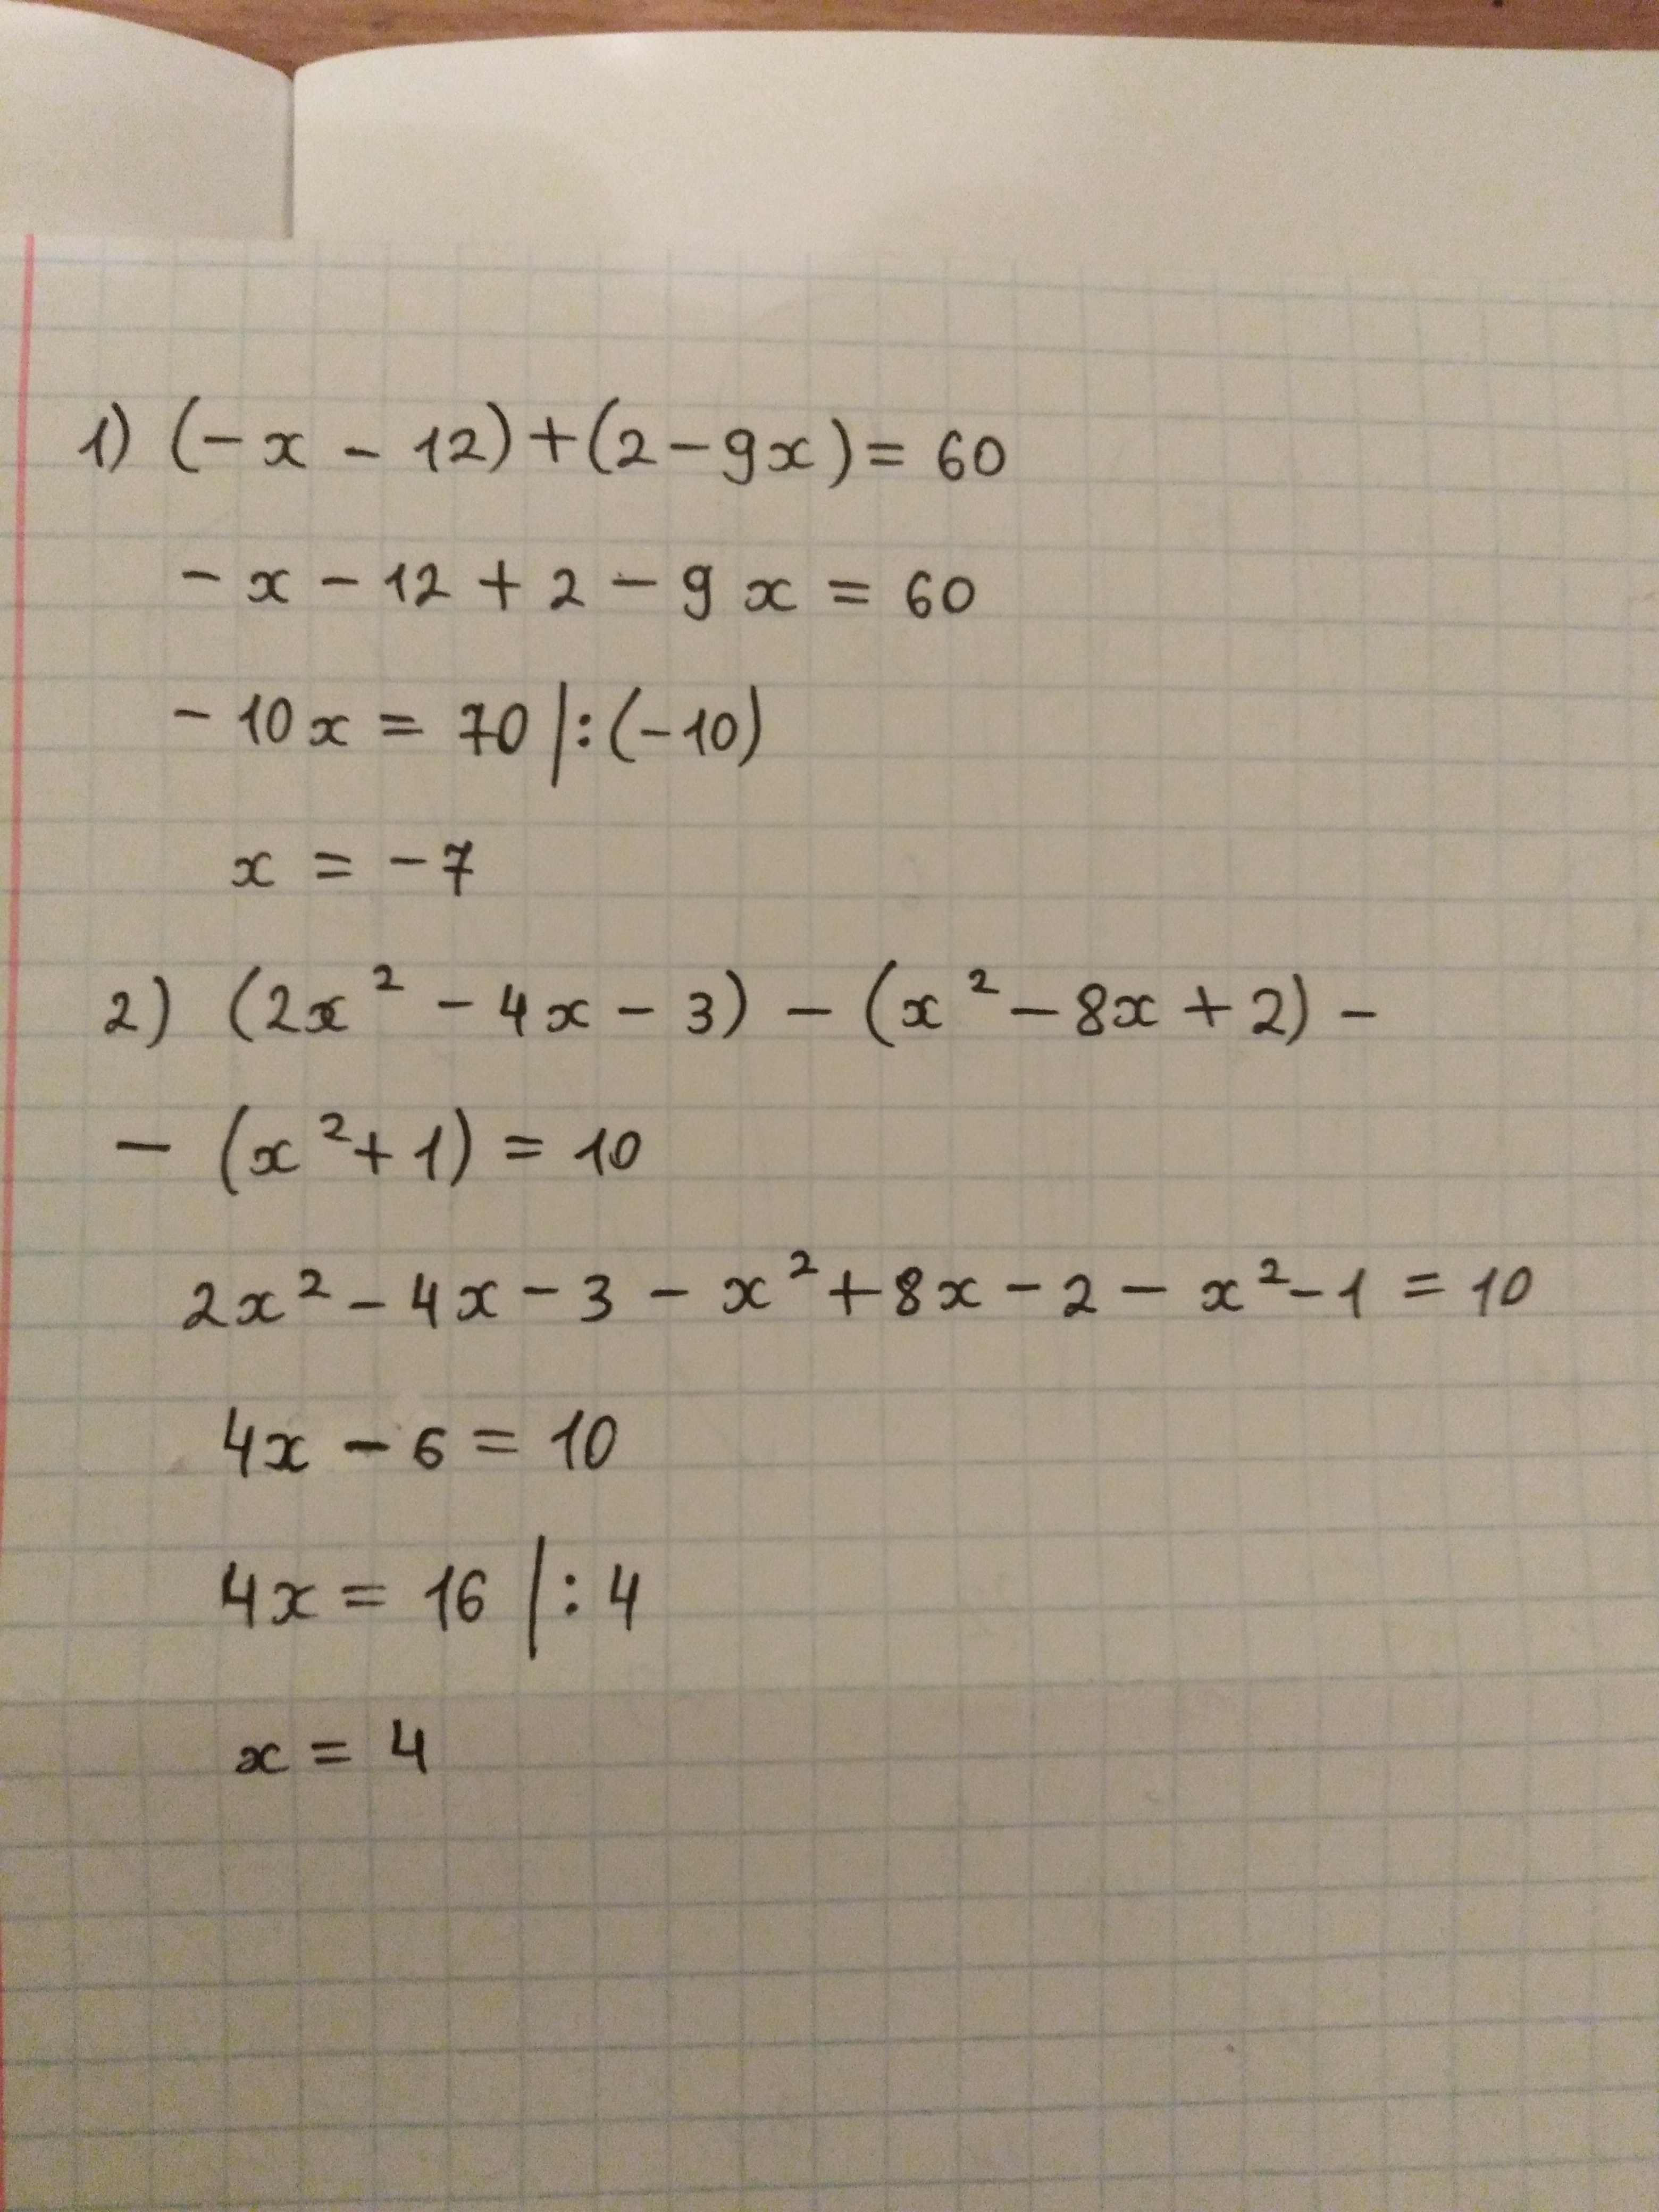 1) (-x - 12)+(2-9x)= 60
-x-12+2-9x=60
-10x = 70 |:(-10)
x = -7
2) (2x² - 4x - 3) - (x² - 8x + 2) -
- (x²+1) = 10
2x² - 4x - 3 - x² + 8x - 2 - x² - 1 = 10
4x - 6 = 10
4x = 16 |: 4
x = 4